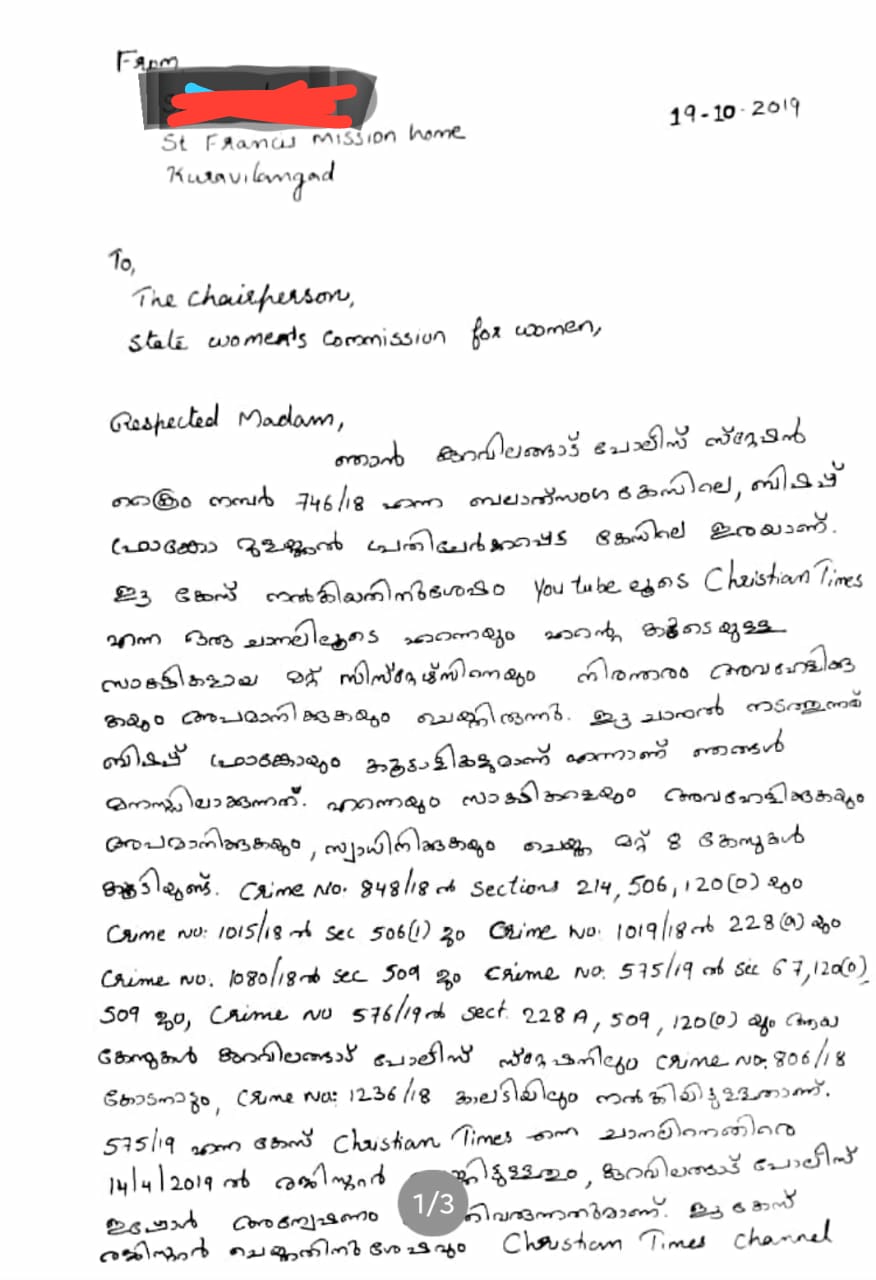 From
St Francis Mission home
Kuravilangad
19-10-2019
To,
The Chairperson,
State women's Commission for women,
Respected Madam,
ഞാൻ കുറവിലങ്ങാട് പോലിസ് സ്റ്റേഷൻ
ക്രൈം നമ്പർ 746/18 എന്ന ബലാത്സംഗ കേസിലെ, ബിഷപ്പ്
ഫ്രാങ്കോ മുളയ്ക്കൽ പ്രതിചേർക്കപ്പെട്ട കേസിലെ ഇരയാണ്.
ഈ കേസ് നൽകിയതിനുശേഷം You tube ലൂടെ Christian Times
എന്ന ഒരു ചാനലിലൂടെ എന്നെയും എന്റെ കൂടെയുള്ള
സാക്ഷികളായ മറ്റ് സിസ്റ്റേഴ്സിനെയും നിരന്തരം അവഹേളിക്കു
കയും അപമാനിക്കുകയും ചെയ്തിരുന്നു. ഈ ചാനൽ നടത്തുന്നത്
ബിഷപ്പ് ഫ്രാങ്കോയും കൂട്ടാളികളുമാണ് എന്നാണ് ഞങ്ങൾ
മനസ്സിലാക്കുന്നത്. എന്നെയും സാക്ഷികളെയും അവഹേളിക്കുകയും
അപമാനിക്കുകയും, സ്വാധിനിക്കുകയും ചെയ്ത മറ്റ് 8 കേസുകൾ
കൂടിയുണ്ട്. Crime No: 848/18 ൽ Sections 214, 506, 120(0) യും
Crime No: 1015/18 ൽ Sec 506(1) ഉം Crime No: 1019/18 ൽ 228(A) യും
Crime No. 1080/18 ൽ sec 509 ഉം Crime No: 575/19 ൽ Sec 67, 120(0),
509 ഉം, Crime No 576/19 ൽ Sect. 228 A, 509, 120(0) യും ആയ
കേസുകൾ കുറവിലങ്ങാട് പോലീസ് സ്റ്റേഷനിലും Crime No: 806/18
കോടനാട്ടും, Crime No: 1236/18 കാലടിയിലും നൽകിയിട്ടുള്ളതാണ്.
575/19 എന്ന കേസ് Christian Times എന്ന ചാനലിനെതിരെ
14/4/2019 ൽ രജിസ്റ്റർ , കുറവിലങ്ങാട് പോലീസ്
ഇപ്പോൾ അന്വേഷണം 1/3 ഈ കേസ്
രജിസ്റ്റർ ചെയ്തതിനു ശേഷവും Christian Times Channel